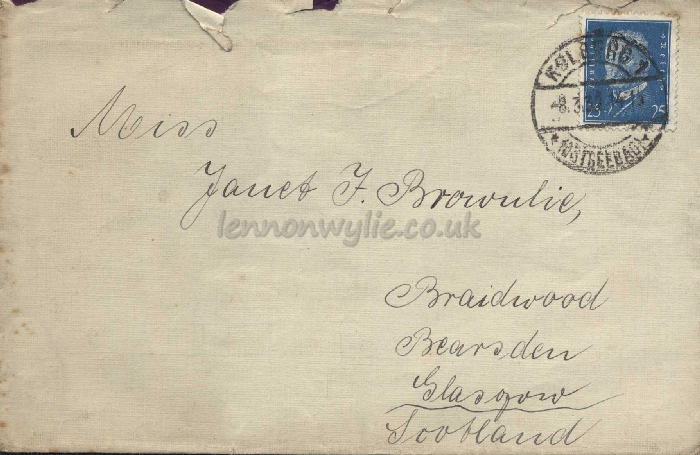 KOLBERG 1
25 25
* OSTSEEBAD *
Miss
Janet F. Brownlie,
lennonwylie.co.uk
Braidwood
Bearsden
Glasgow
Scotland